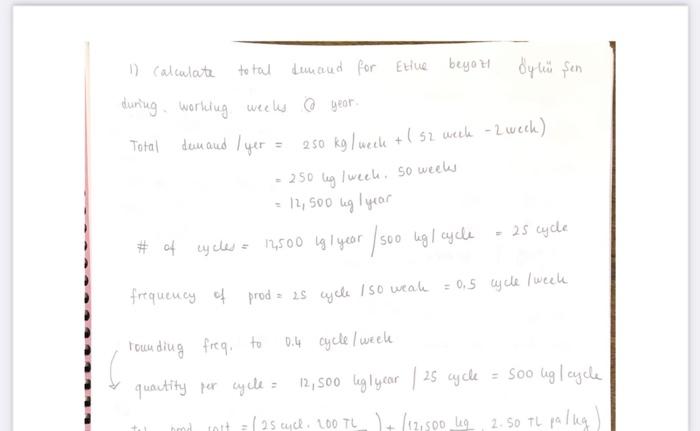 1) Calculate total demand for Etiue beyazı Öykü Şen
during working weeks @ year.
Total demand / yer = 250 kg/week + ( 52 week - 2 week)
= 250 kg / week . 50 weeks
= 12,500 kg / year
# of cycles = 12,500 kg / year / 500 kg / cycle = 25 cycle
frequency of prod = 25 cycle / 50 weak = 0,5 cycle / week
rounding freq. to 0.4 cycle / week
quantity per cycle = 12,500 kg/year / 25 cycle = 500 kg / cycle
prod cost = ( 25 cycl. 200 TL ) + (12,500 kg . 2.50 TL pa / kg )